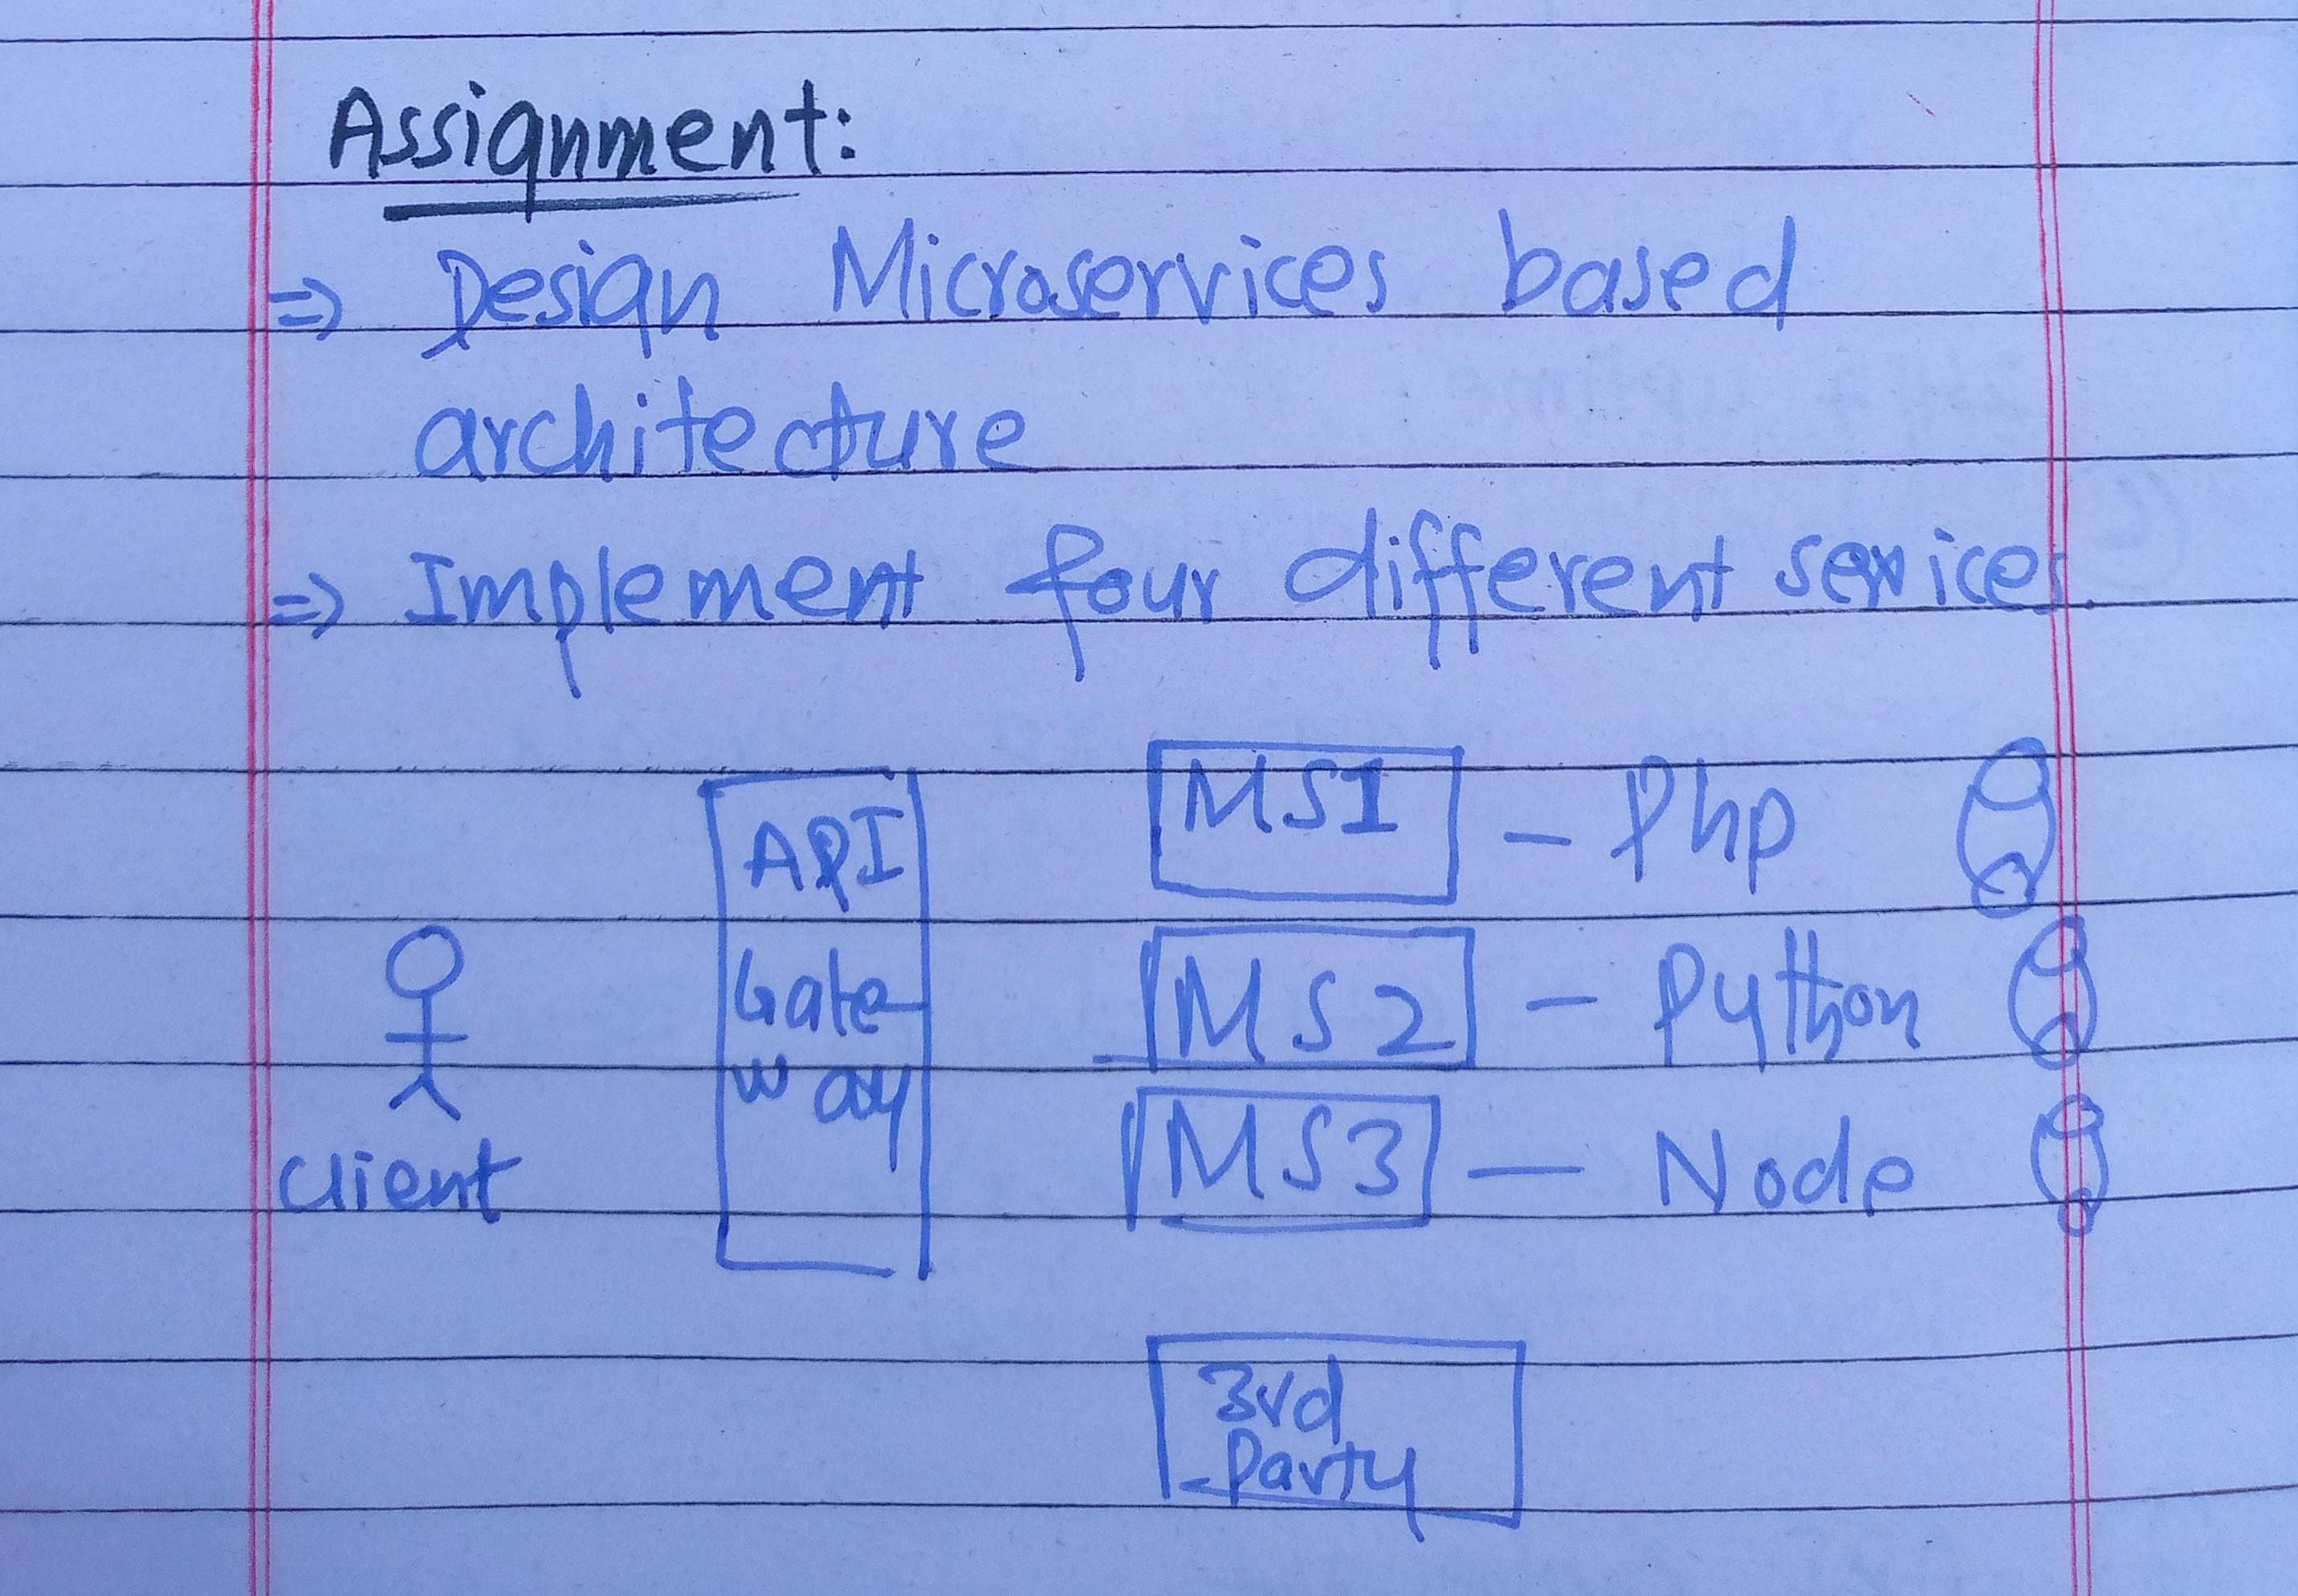 Assignment:
=> Design Microservices based
architecture
=> Implement four different services.
API
Gate-
way
client
MS1 - Php
MS2 - Python
MS3 - Node
3rd
Party